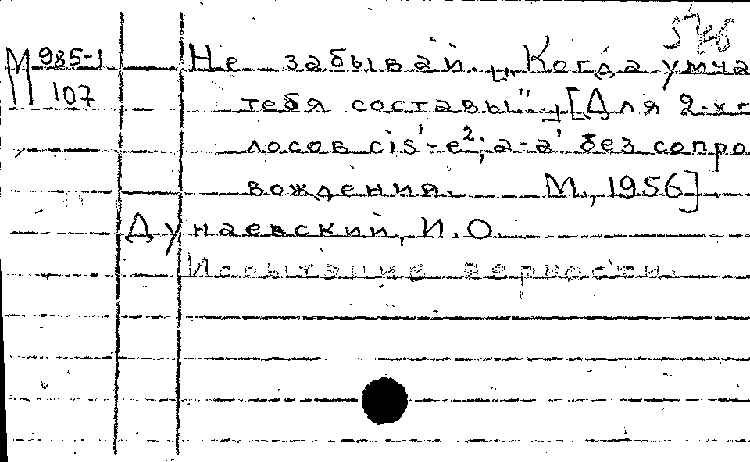 546
М 985-1
107
Не забывай. „Когда умча
тебя составы" [Для 2-х г
лосов cis'-e²; a-a' без сопро
вождения. М., 1956]
Дунаевский, И.О.
Испытание верности.